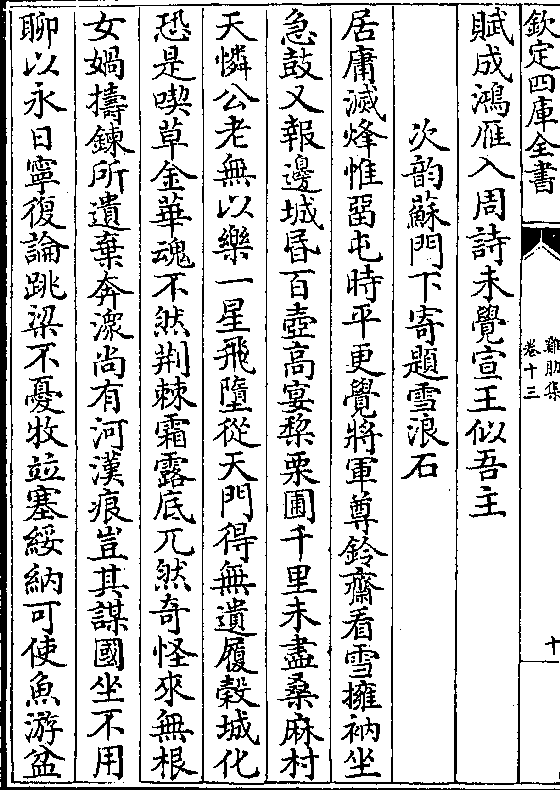 欽定四庫全書
雞肋集
卷十三
十
賦成鴻雁入周詩未覺宣王似吾主
次韵蘇門下寄題雪浪石
居庸滅烽惟留屯時平更覺將軍尊鈴齋看雪擁衲坐
急鼓又報邊城昏百壺高宴梨栗圃千里未盡桑麻村
天憐公老無以樂一星飛墮從天門得無遺履穀城化
恐是喫草金華魂不然荆棘霜露底兀然奇怪來無根
女媧擣鍊所遺棄奔潨尚有河漢痕豈其謀國坐不用
聊以永日寧復論跳梁不憂牧並塞綏納可使魚游盆